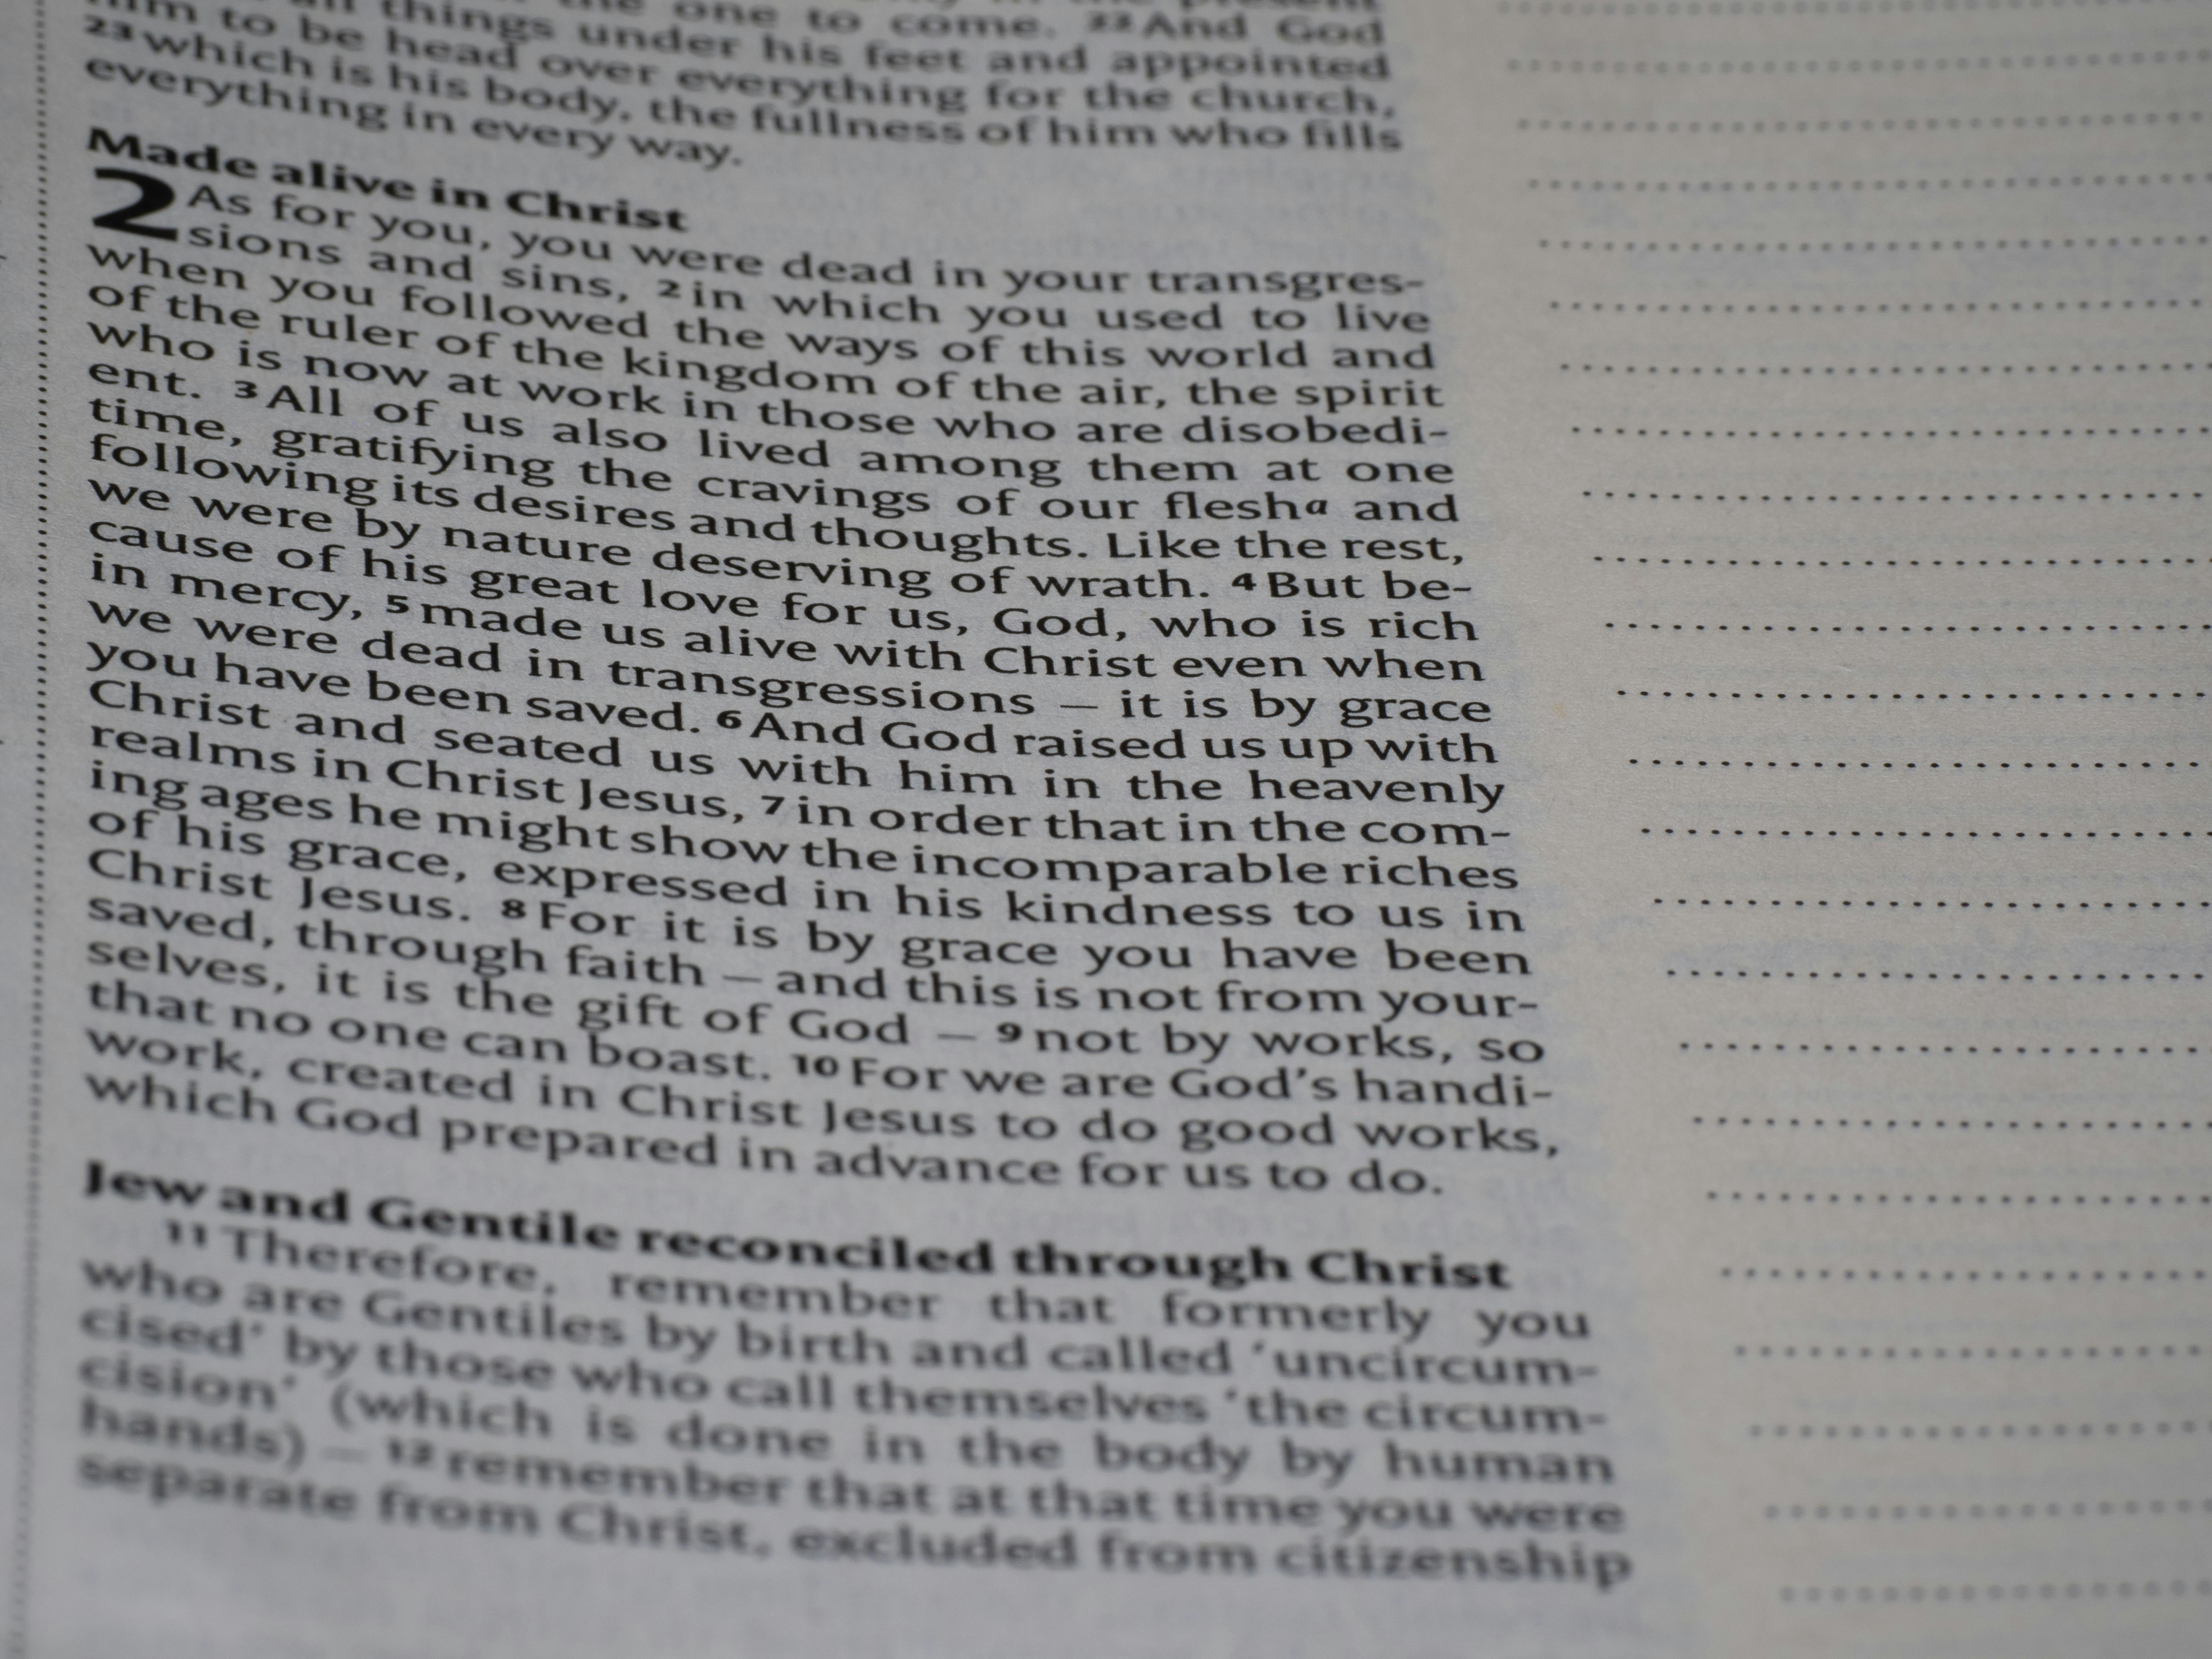 things under the one to come. 22 And God
him to be head over his feet and appointed
23 which is his body, over everything for the church,
everything in every way. the fullness of him who fills
Made alive in Christ
2 As for you, you were dead in your transgres-
sions and sins, 2 in which you used to live
when you followed the ways of this world and
of the ruler of the kingdom of the air, the spirit
who is now at work in those who are disobedi-
ent. 3 All of us also lived among them at one
time, gratifying the cravings of our flesh a and
following its desires and thoughts. Like the rest,
we were by nature deserving of wrath. 4 But be-
cause of his great love for us, God, who is rich
in mercy, 5 made us alive with Christ even when
we were dead in transgressions – it is by grace
you have been saved. 6 And God raised us up with
Christ and seated us with him in the heavenly
realms in Christ Jesus, 7 in order that in the com-
ing ages he might show the incomparable riches
of his grace, expressed in his kindness to us in
Christ Jesus. 8 For it is by grace you have been
saved, through faith – and this is not from your-
selves, it is the gift of God – 9 not by works, so
that no one can boast. 10 For we are God's handi-
work, created in Christ Jesus to do good works,
which God prepared in advance for us to do.
Jew and Gentile reconciled through Christ
11 Therefore, remember that formerly you
who are Gentiles by birth and called 'uncircum-
cised' by those who call themselves 'the circum-
cision' (which is done in the body by human
hands) – 12 remember that at that time you were
separate from Christ, excluded from citizenship